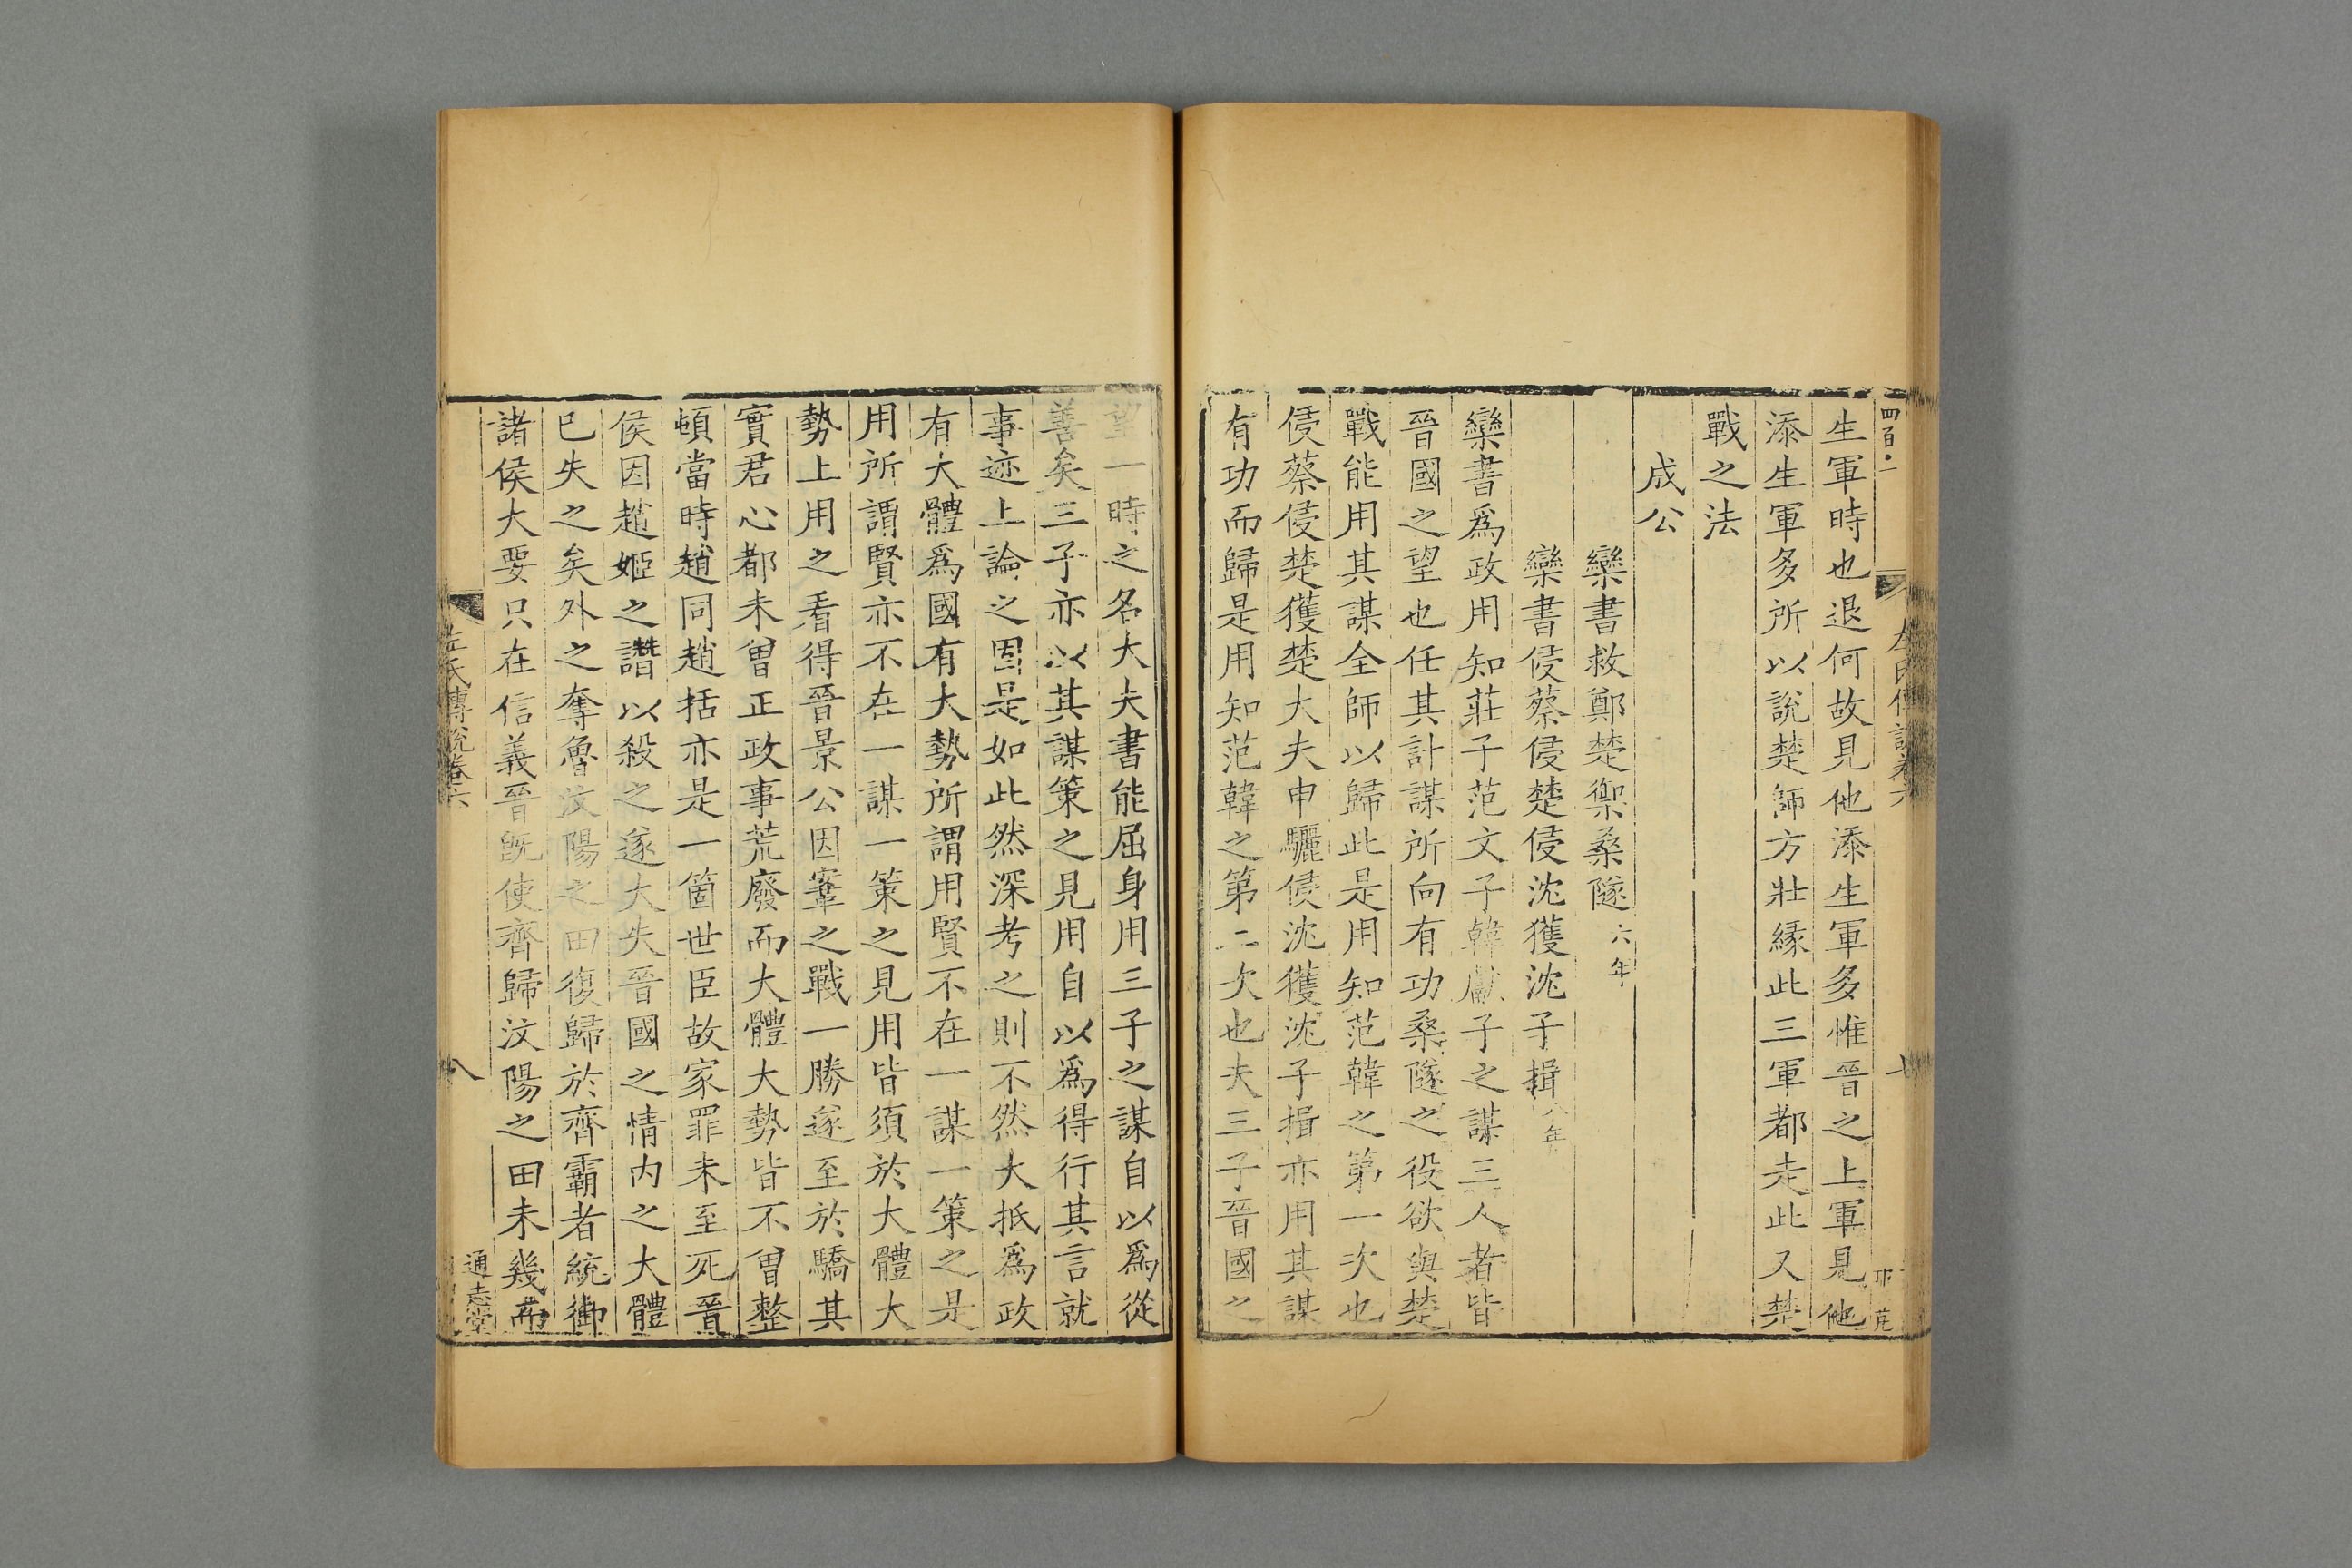 四百·一
生軍時也退何故見他添生軍多惟晉之上軍見他
添生軍多所以說楚師方壯緣此三軍都走此又楚
戰之法
成公
欒書救鄭楚禦桑隧六年
欒書侵蔡侵楚侵沈獲沈子揖八年
欒書為政用知莊子范文子韓獻子之謀三人者皆
晉國之望也任其計謀所向有功桑隧之役欲與楚
戰能用其謀全師以歸此是用知范韓之第一次也
侵蔡侵楚獲楚大夫申驪侵沈獲沈子揖亦用其謀
有功而歸是用知范韓之第二次也夫三子晉國之
望一時之名大夫書能屈身用三子之謀自以為從
善矣三子亦以其謀策之見用自以為得行其言就
事迹上論之固是如此然深考之則不然大抵為政
有大體為國有大勢所謂用賢不在一謀一策之是
用所謂賢亦不在一謀一策之見用皆須於大體大
勢上用之看得晉景公因鞌之戰一勝遂至於驕其
實君心都未曾正政事荒廢而大體大勢皆不曾整
頓當時趙同趙括亦是一箇世臣故家罪未至死晉
侯因趙姬之譖以殺之遂大失晉國之情內之大體
已失之矣外之奪魯汶陽之田復歸於齊霸者統御
諸侯大要只在信義晉旣使齊歸汶陽之田未幾而
左氏傳說卷六
八
通志堂